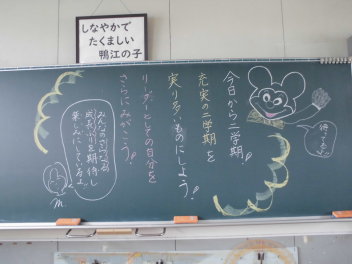 しなやかで
たくましい
鴨江の子
今日から二学期!!
充実の二学期を
実り多いものにしよう!!
リーダーとしての自分を
さらにみがこう!!
みんなのさらなる
成長ぶりを期待し
楽しみにしているよ。
m.
待ってるよ